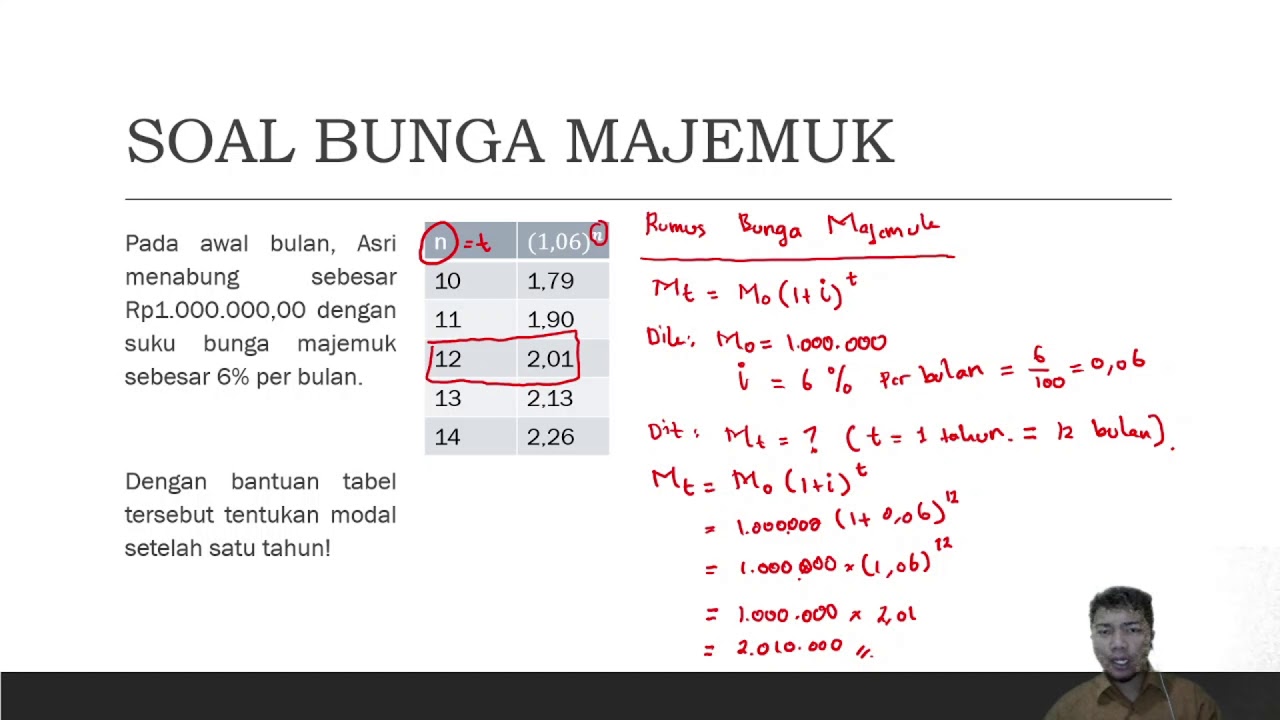 SOAL BUNGA MAJEMUK
Pada awal bulan, Asri
menabung sebesar
Rp1.000.000,00 dengan
suku bunga majemuk
sebesar 6% per bulan.
Dengan bantuan tabel
tersebut tentukan modal
setelah satu tahun!
n = t (1,06)^n
10 1,79
11 1,90
12 2,01
13 2,13
14 2,26
Rumus Bunga Majemuk
Mt = Mo (1+i)^t
Dik: Mo = 1.000.000
i = 6 % per bulan = 6/100 = 0,06
Dit: Mt = ? (t = 1 tahun. = 12 bulan).
Mt = Mo (1+i)^t
= 1.000.000 (1+ 0,06)^12
= 1.000.000 × (1,06)^12
= 1.000.000 × 2,01
= 2.010.000 //.